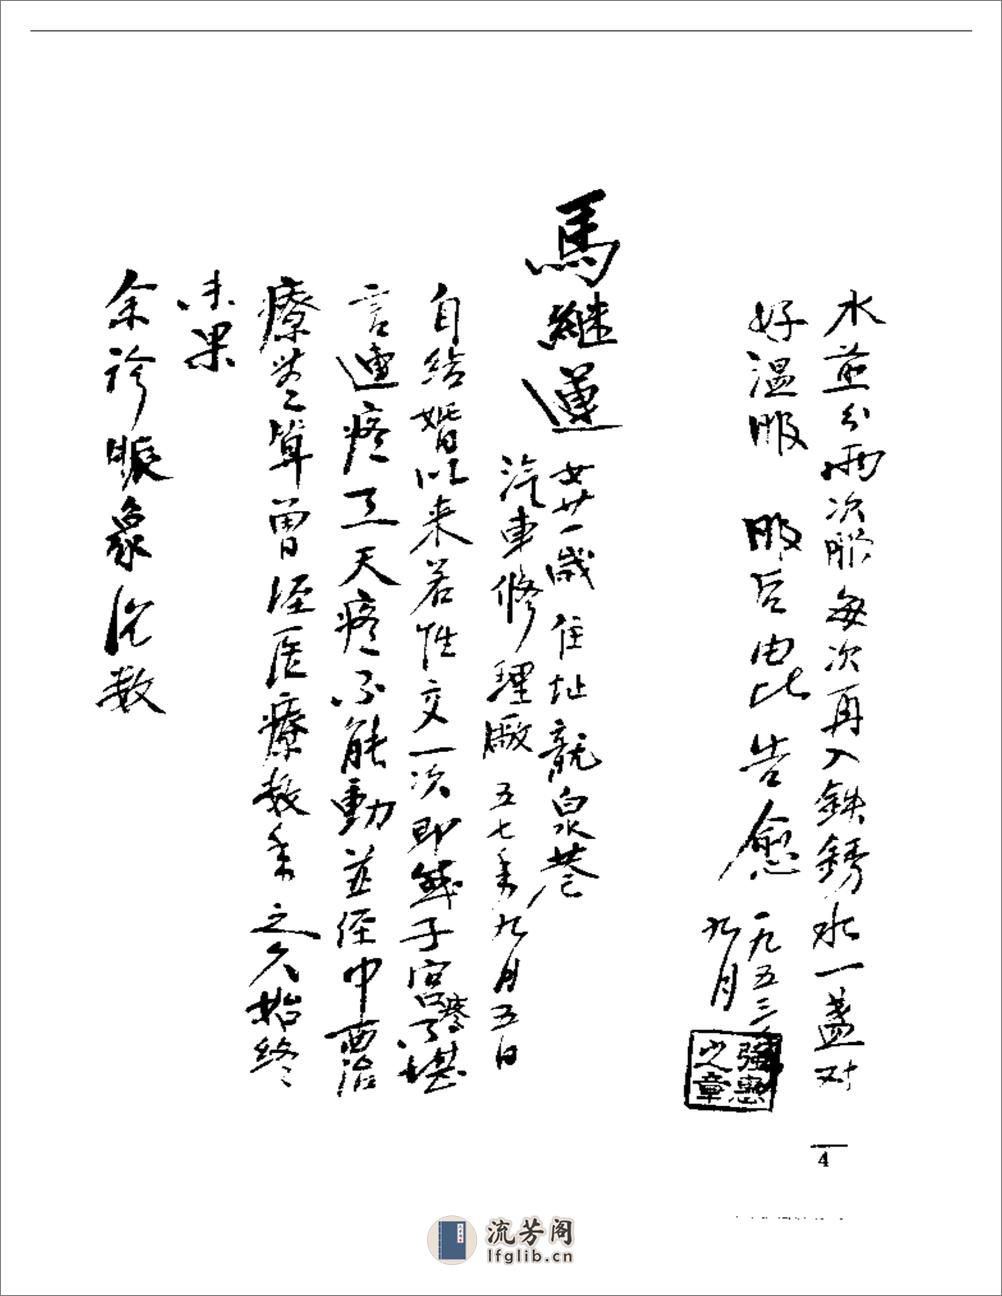 水煎分兩次服每次再入鉄銹水一盏对
好温服 服后由此告愈 一九五三年
九月
強惠
之章
馬継蓮 女廿一歲 住址龍泉巷
汽車修理厰 五七年九月五日
自结婚以来若性交一次即然子宫疼不堪
言連疼三天疼不能動並经中西治
療无算曽经医療数年之久始终
未果
余诊脈象沉数
4
流芳阁
lfglib.cn